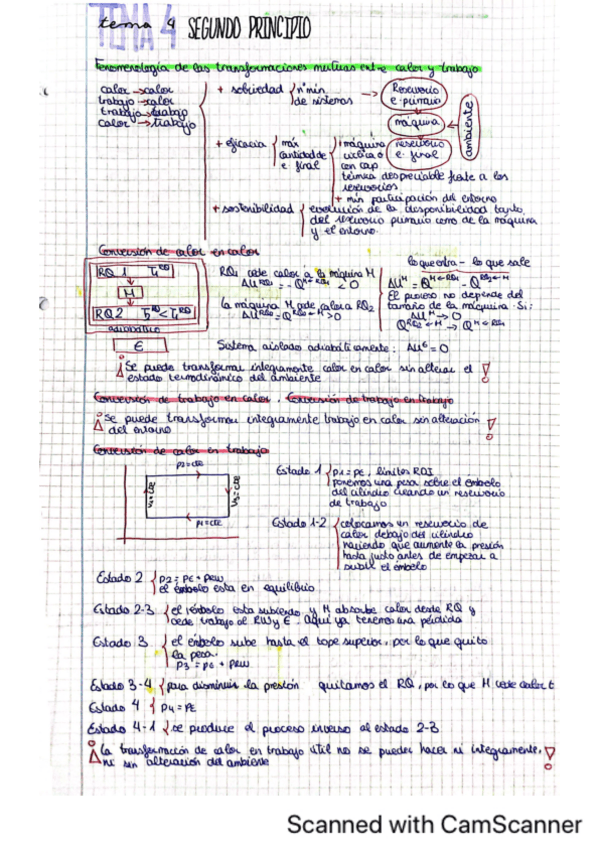 TEMA 4
tema 4 SEGUNDO PRINCIPIO
Fenomenología de las transformaciones mutuas entre calor y trabajo
calor → calor
trabajo → calor
trabajo → trabajo
calor → trabajo
+ sobriedad { nº min de sistemas →
Reservorio e. primario
máquina
reservorio e. final
ambiente
+ eficacia { max cantidad de e final
máquina cíclica o con cap térmica despreciable frente a los reservorios
+ min participación del entorno
+ sostenibilidad { evolución de la disponibilidad tanto
del reservorio primario como de la máquina
y el entorno.
Conversión de calor en calor
RQ 1 T1RQ
M
RQ2 T2RQ < T1RQ
adiabático
E
RQ1 cede calor a la máquina M
ΔU^RQ1 = -Q^M←RQ1 < 0
la máquina M cede calor a RQ2
ΔU^RQ2 = Q^RQ2←M > 0
lo que entra - lo que sale
ΔU^M = Q^M←RQ1 - Q^RQ2←M
El proceso no depende del
tamaño de la máquina. Si:
ΔU^M → 0
Q^RQ2←M → Q^M←RQ1
Sistema aislado adiabáticamente: ΔU^E = 0
¡Se puede transformar íntegramente calor en calor sin alterar el
estado termodinámico del ambiente!
Conversión de trabajo en calor. Conversión de trabajo en trabajo
¡Se puede transformar íntegramente trabajo en calor sin alteración
del entorno!
Conversión de calor en trabajo
P2=CTE
V1=CTE
V3=CTE
P1=CTE
Estado 1 { P1=PE, límites RQI
ponemos una pesa sobre el émbolo
del cilindro creando un reservorio
de trabajo
Estado 1-2 { colocamos un reservorio de
calor debajo del cilindro
haciendo que aumente la presión
hasta justo antes de empezar a
subir el émbolo
Estado 2 { P2 = PE + PRW
el émbolo esta en equilibrio
Estado 2-3 { el émbolo esta subiendo y M absorbe calor desde RQ y
cede trabajo al RW y E. Aquí ya tenemos una pérdida
Estado 3 { el émbolo sube hasta el tope superior, por lo que quito
la pesa.
P3 = PE + PRW
Estado 3-4 { para disminuir la presión quitamos el RQ, por lo que M cede calor t
Estado 4 { P4=PE
Estado 4-1 { se produce el proceso inverso al estado 2-3
¡la transformación de calor en trabajo útil no se puede hacer ni íntegramente,
ni sin alteración del ambiente!
Scanned with CamScanner